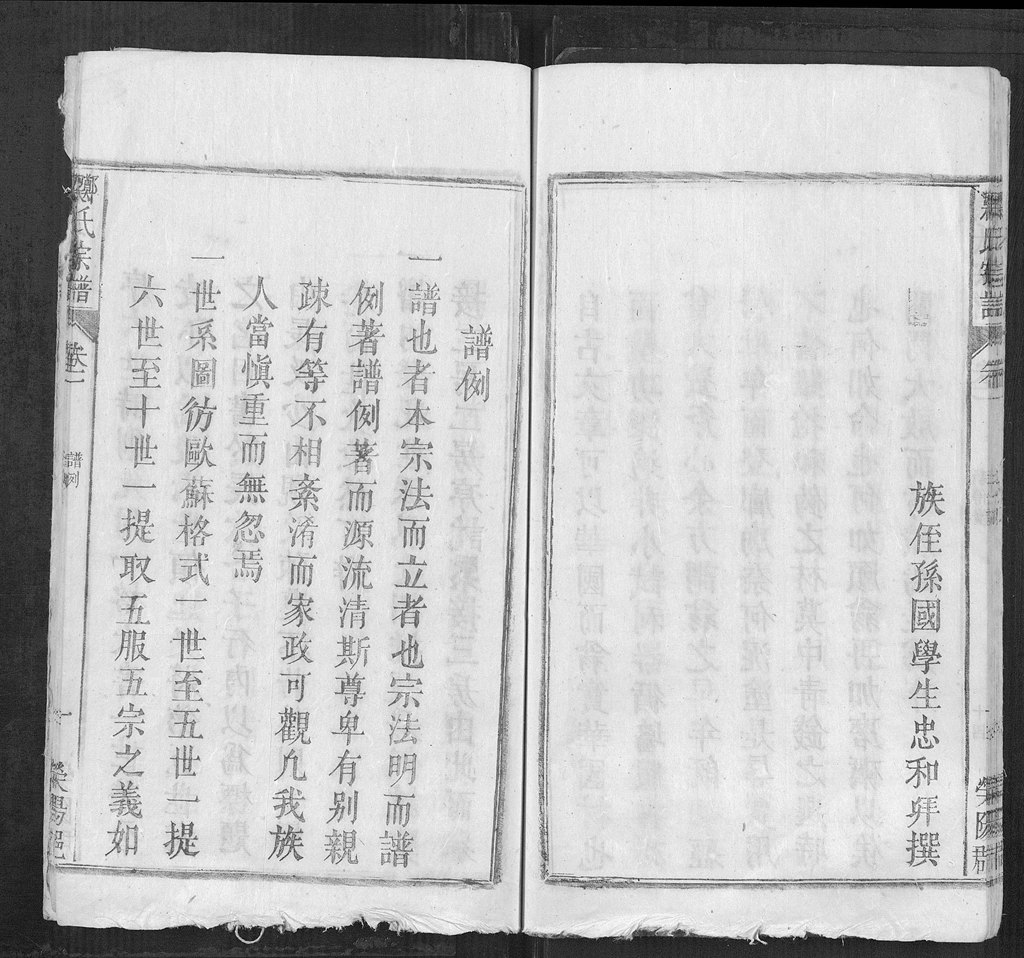 氏宗譜
族侄孫國學生忠和拜撰
滎陽郡
譜例
一譜也者本宗法而立者也宗法明而譜
例著譜例著而源流清斯尊卑有别親
疎有等不相紊淆而家政可觀凡我族
人當慎重而無忽焉
一世系圖彷歐蘇格式一世至五世一提
六世至十世一提取五服五宗之義如
鄭氏宗譜
卷一
譜例
一
滎陽郡